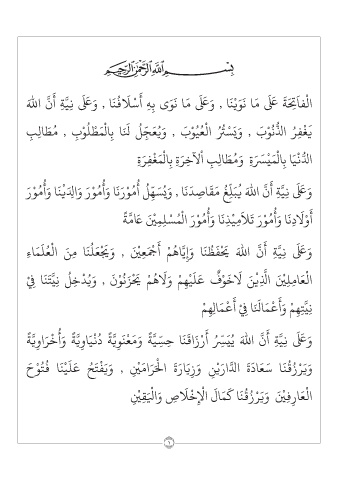 بِسْمِ اللهِ الرَّحْمٰنِ الرَّحِيْمِ
الْفَاتِحَةَ عَلَى مَا نَوَيْنَا , وَعَلَى مَا نَوَى بِهِ أَسْلَافُنَا , وَعَلَى نِيَّةِ أَنَّ اللهَ
يَغْفِرُ الذُّنُوْبَ , وَيَسْتُرُ الْعُيُوْبَ , وَيُعَجِّلُ لَنَا بِالْمَطْلُوْبِ , مَطَالِبِ
الدُّنْيَا بِالْمَيْسَرَةِ وَمَطَالِبِ الْآخِرَةِ بِالْمَغْفِرَةِ
وَعَلَى نِيَّةِ أَنَّ اللهَ يُبَلِّغُ مَقَاصِدَنَا , وَيُسَهِّلُ أُمُوْرَنَا وَأُمُوْرَ وَالِدِيْنَا وَأُمُوْرَ
أَوْلَادِنَا وَأُمُوْرَ تَلَامِيْذِنَا وَأُمُوْرَ الْمُسْلِمِيْنَ عَامَّةً
وَعَلَى نِيَّةِ أَنَّ اللهَ يَحْفَظُنَا وَإِيَّاهُمْ أَجْمَعِيْنَ , وَيَجْعَلُنَا مِنَ الْعُلَمَاءِ
الْعَامِلِيْنَ الَّذِيْنَ لَاخَوْفٌ عَلَيْهِمْ وَلَاهُمْ يَحْزَنُوْنَ , وَيُدْخِلُ نِيَّتَنَا فِيْ
نِيَّتِهِمْ وَأَعْمَالَنَا فِيْ أَعْمَالِهِمْ
وَعَلَى نِيَّةِ أَنَّ اللهَ يُيَسِّرُ أَرْزَاقَنَا حِسِّيَّةً وَمَعْنَوِيَّةً دُنْيَاوِيَّةً وَأُخْرَاوِيَّةً
وَيَرْزُقُنَا سَعَادَةَ الدَّارَيْنِ وَزِيَارَةَ الْحَرَامَيْنِ , وَيَفْتَحُ عَلَيْنَا فُتُوْحَ
الْعَارِفِيْنَ وَيَرْزُقُنَا كَمَالَ الْإِخْلَاصِ وَالْيَقِيْنِ
١